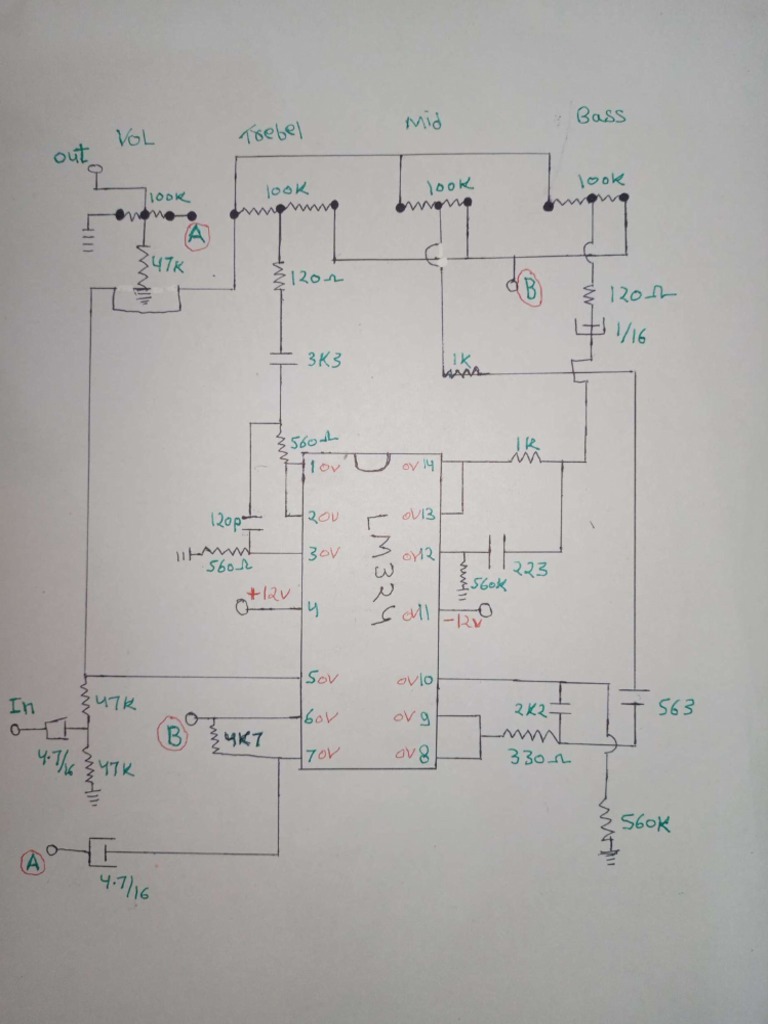 VOL Trebel Mid Bass
out
100K 100K 100K 100K
A
47K 120Ω B 120Ω
1/16
3K3 1K
560Ω 1K
1 0V 0V 14
120p 2 0V 0V 13
LM324
3 0V 0V 12
560Ω 560K 223
+12V 4 0V 11 -12V
5 0V 0V 10
In 47K 2K2 563
B 6 0V 0V 9
4.7/16 4K7
47K 7 0V 0V 8 330Ω
560K
A
4.7/16